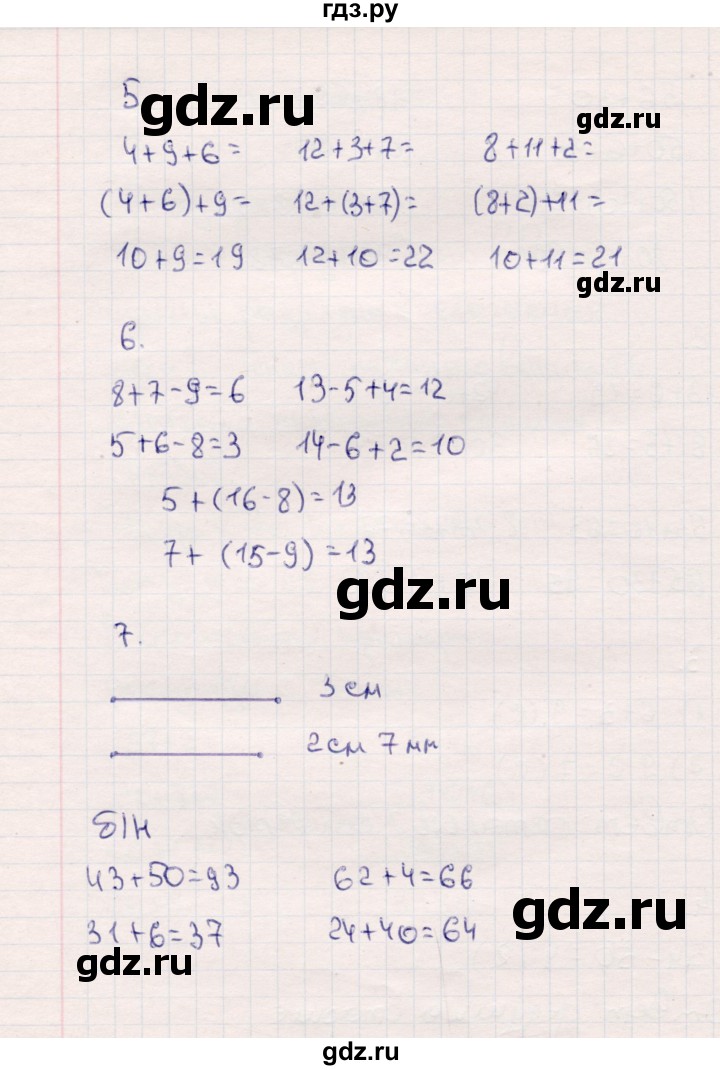 гдз.ру
5
gdz.ru
gdz.ru
4+9+6= 12+3+7= 8+11+2=
(4+6)+9= 12+(3+7)= (8+2)+11=
10+9=19 12+10=22 10+11=21
gdz.ru
6.
8+7-9=6 13-5+4=12
5+6-8=3 14-6+2=10
5+(16-8)=13
7+(15-9)=13
gdz.ru
7.
3 см
2 см 7 мм
Б/Н
43+50=93 62+4=66
gdz.ru
31+6=37 24+40=64
gdz.ru
gdz.ru